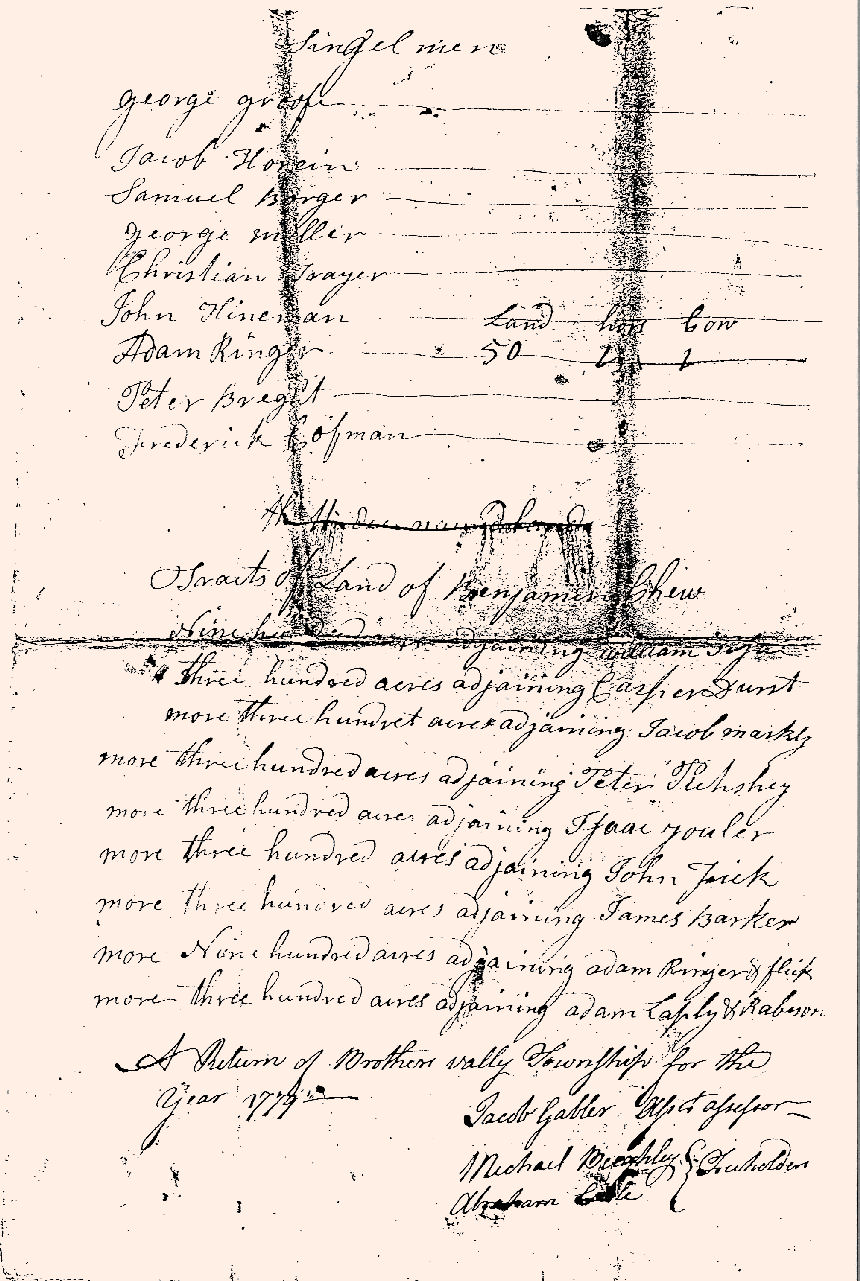 Singel men
george groofe
Jacob Horein
Samuel Borger
george miller
Christian Trayer
John Hineman Land hors Cow
Adam Ringer 50 1
Peter Breght
Frederick Cofman
Tracts of Land of Benjamin Chew
Nine hundred acres adjaining william
three hundred acres adjaining Casper Durst
more three hundret acres adjaining Jacob markly
more three hundred acres adjaining Peter
more three hundred acres adjaining Isaac youler
more three hundred acres adjaining John Frick
more three hundred acres adjaining James Barker
more Nine hundred acres adjaining adam Ringer & flick
more three hundred acres adjaining adam Laply & Rabeson
A Return of Brothers vally Township for the
Year 1779
Jacob Gabler Asst assessor
Michael Freeholders
Abraham